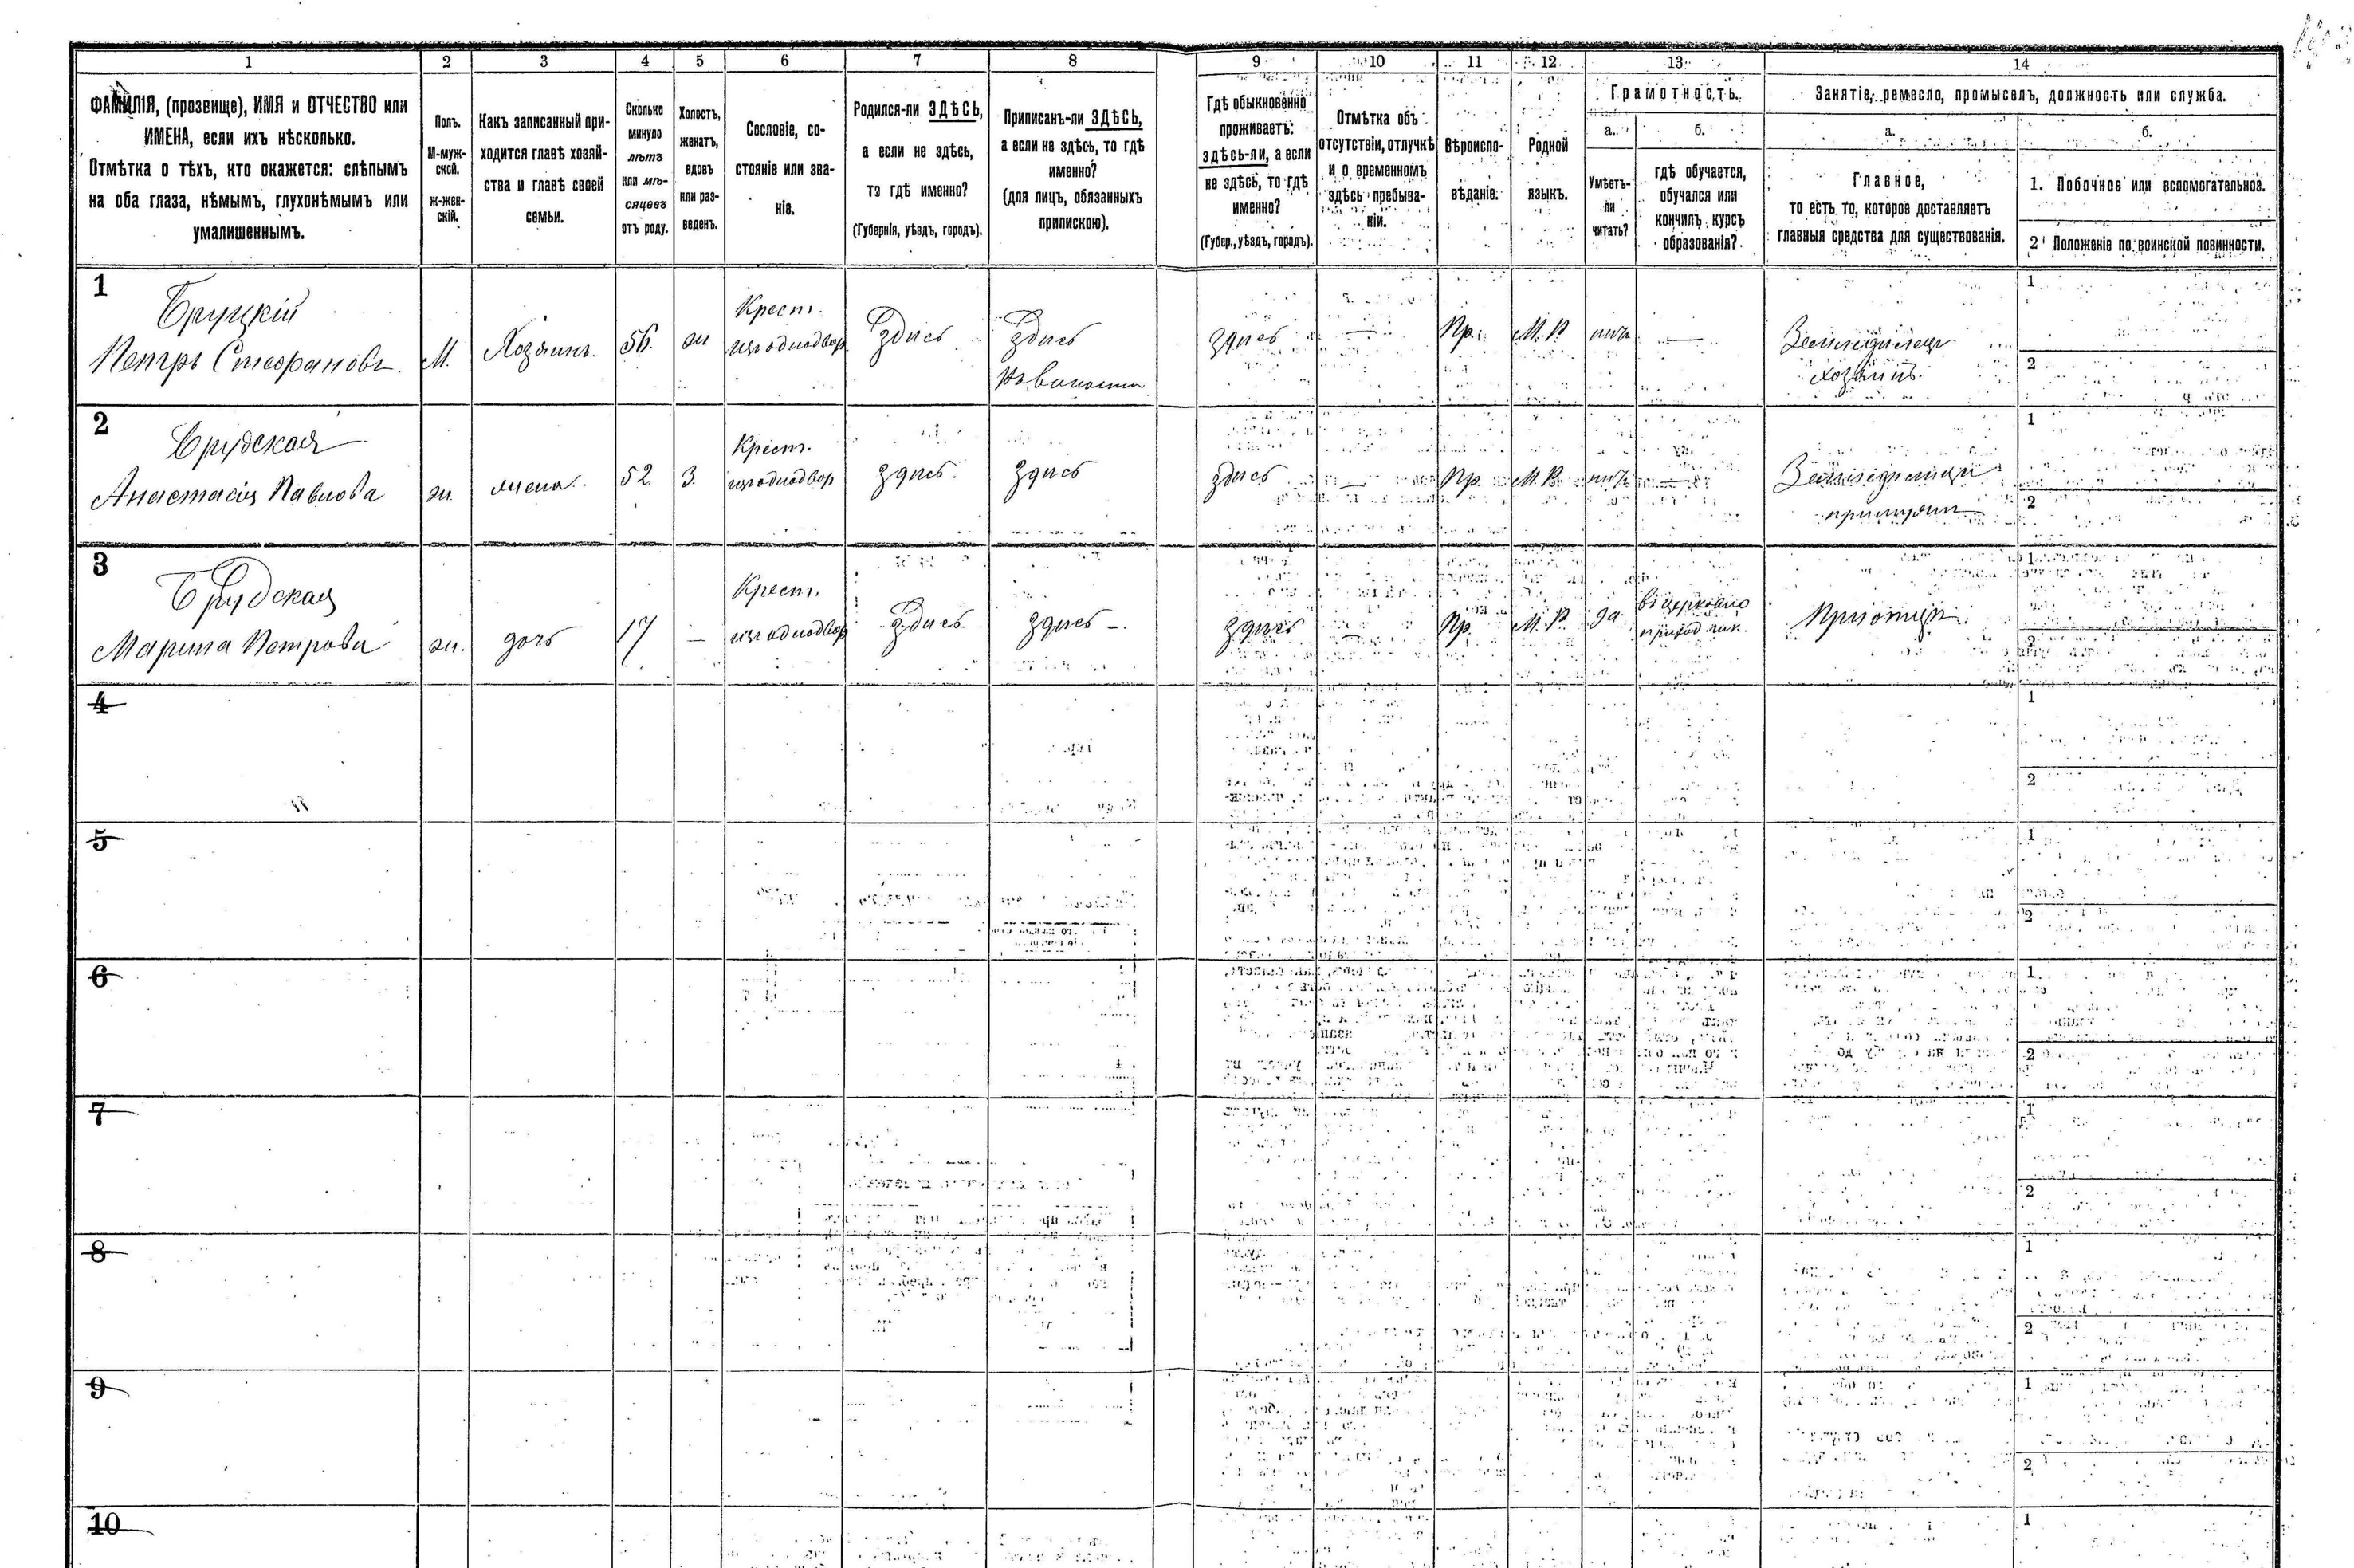 1 2 3 4 5 6 7 8 9 10 11 12 13 14
ФАМИЛІЯ, (прозвище), ИМЯ и ОТЧЕСТВО или
ИМЕНА, если ихъ нѣсколько.
Отмѣтка о тѣхъ, кто окажется: слѣпымъ
на оба глаза, нѣмымъ, глухонѣмымъ или
умалишеннымъ.
Полъ.
М-муж-
ской.
Ж-жен-
скій.
Какъ записанный при-
ходится главѣ хозяй-
ства и главѣ своей
семьи.
Сколько
минуло
лѣтъ
или мѣ-
сяцевъ
отъ роду.
Холостъ,
женатъ,
вдовъ
или раз-
веденъ.
Сословіе, со-
стояніе или зва-
ніе.
Родился-ли ЗДѢСЬ,
а если не здѣсь,
то гдѣ именно?
(Губернія, уѣздъ, городъ).
Приписанъ-ли ЗДѢСЬ,
а если не здѣсь, то гдѣ
именно?
(для лицъ, обязанныхъ
припискою).
Гдѣ обыкновенно
проживаетъ:
здѣсь-ли, а если
не здѣсь, то гдѣ
именно?
(Губер., уѣздъ, городъ).
Отмѣтка объ
отсутствіи, отлучкѣ
и о временномъ
здѣсь пребыва-
ніи.
Вѣроиспо-
вѣданіе.
Родной
языкъ.
Грамотность.
а.
Умѣетъ-
ли
читать?
б.
гдѣ обучается,
обучался или
кончилъ курсъ
образованія?
Занятіе, ремесло, промыселъ, должность или служба.
а.
Главное,
то есть то, которое доставляетъ
главныя средства для существованія.
б.
1. Побочное или вспомогательное.
2 Положеніе по воинской повинности.
1
Бруцкій
Петръ Стефановъ
М.
Хозяинъ.
56
ж
Крест.
изъ однодвор
Здись
Здись
здись
—
Пр.
М. Р.
нитъ
—
Земледилецъ
хозяинъ.
1
2
2
Брудская
Анастасія Павлова
ж.
жена.
52
З.
Крест.
изъ однодвор
здись.
здись
здись
—
Пр.
М. Р.
нитъ
—
1
2
3
Брудская
Марина Петрова
ж.
дочь
17
—
Крест.
изъ однодвор
Здись
здись -.
здись
Пр.
М. Р.
да
въ церковно
приход.
1
2
4
1
2
5
1
2
6
1
2
7
1
2
8
1
2
9
1
2
10
1